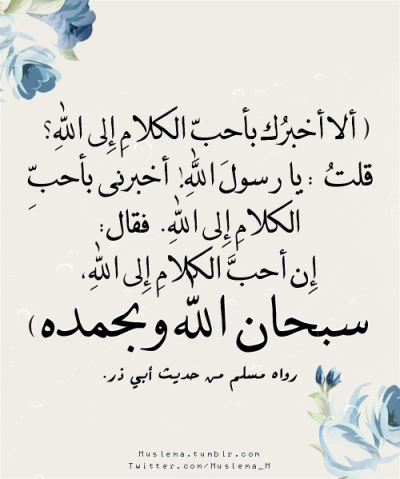 ( ألا أخبرُك بأحبّ الكلامِ إِلى اللهِ؟
قلتُ : يا رسولَ اللَّهِ! أخبرنى بأحبِّ
الكلامِ إِلى اللهِ. فقال:
إِن أحبَّ الكلامِ إِلى اللهِ،
سبحان الله وبحمده )
رواه مسلم من حديث أبي ذر.
Muslema.tumblr.com
Twitter.com/Muslema_M